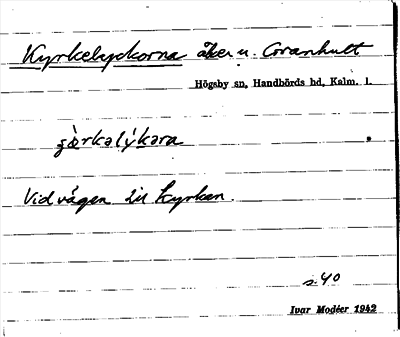 Kyrkelyckorna åker u. Granhult
Högsby sn, Handbörds hd, Kalm. l.
çὰrkəlýkəra
Vid vägen till kyrkan.
s. 40
Ivar Modéer 1942